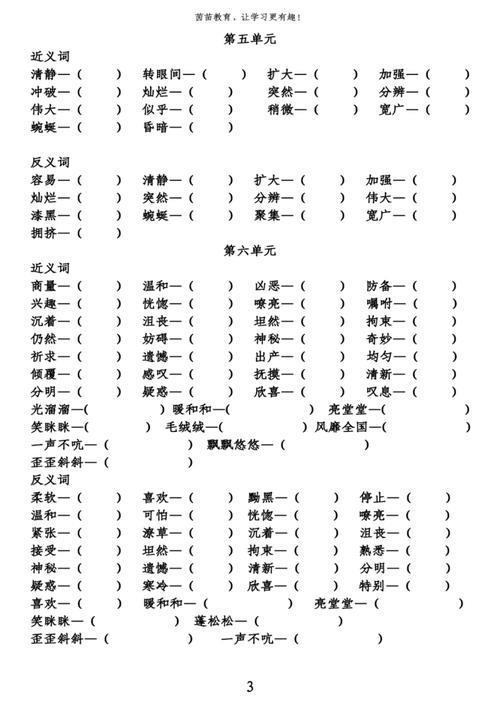 茵苗教育，让学习更有趣！
第五单元
近义词
清静—（ ） 转眼间—（ ） 扩大—（ ） 加强—（ ）
冲破—（ ） 灿烂—（ ） 突然—（ ） 分辨—（ ）
伟大—（ ） 似乎—（ ） 稍微—（ ） 宽广—（ ）
蜿蜒—（ ） 昏暗—（ ）
反义词
容易—（ ） 清静—（ ） 扩大—（ ） 加强—（ ）
灿烂—（ ） 突然—（ ） 分辨—（ ） 伟大—（ ）
漆黑—（ ） 蜿蜒—（ ） 聚集—（ ） 宽广—（ ）
拥挤—（ ）
第六单元
近义词
商量—（ ） 温和—（ ） 凶恶—（ ） 防备—（ ）
兴趣—（ ） 恍惚—（ ） 嘹亮—（ ） 嘱咐—（ ）
沉着—（ ） 沮丧—（ ） 坦然—（ ） 拘束—（ ）
仍然—（ ） 妨碍—（ ） 神秘—（ ） 奇妙—（ ）
祈求—（ ） 遗憾—（ ） 出产—（ ） 均匀—（ ）
倾覆—（ ） 感叹—（ ） 抚摸—（ ） 清新—（ ）
分明—（ ） 疑惑—（ ） 欣喜—（ ） 叹息—（ ）
光溜溜—( ）暖和和—（ ） 亮堂堂—（ ）
笑眯眯—( ） 毛绒绒—（ ）风靡全国—（ ）
一声不吭—（ ） 飘飘悠悠—（ ）
歪歪斜斜—（ ）
反义词
柔软—（ ） 喜欢—（ ） 黝黑—（ ） 停止—（ ）
温和—（ ） 可怕—（ ） 恍惚—（ ） 嘹亮—（ ）
紧张—（ ） 潦草—（ ） 沉着—（ ） 沮丧—（ ）
接受—（ ） 坦然—（ ） 拘束—（ ） 熟悉—（ ）
神秘—（ ） 遗憾—（ ） 清新—（ ） 分明—（ ）
疑惑—（ ） 寒冷—（ ） 欣喜—（ ） 特别—（ ）
喜欢—（ ） 暖和和—（ ） 亮堂堂—（ ）
笑眯眯—（ ） 蓬松松—（ ）
歪歪斜斜—（ ） 一声不吭—（ ）
3